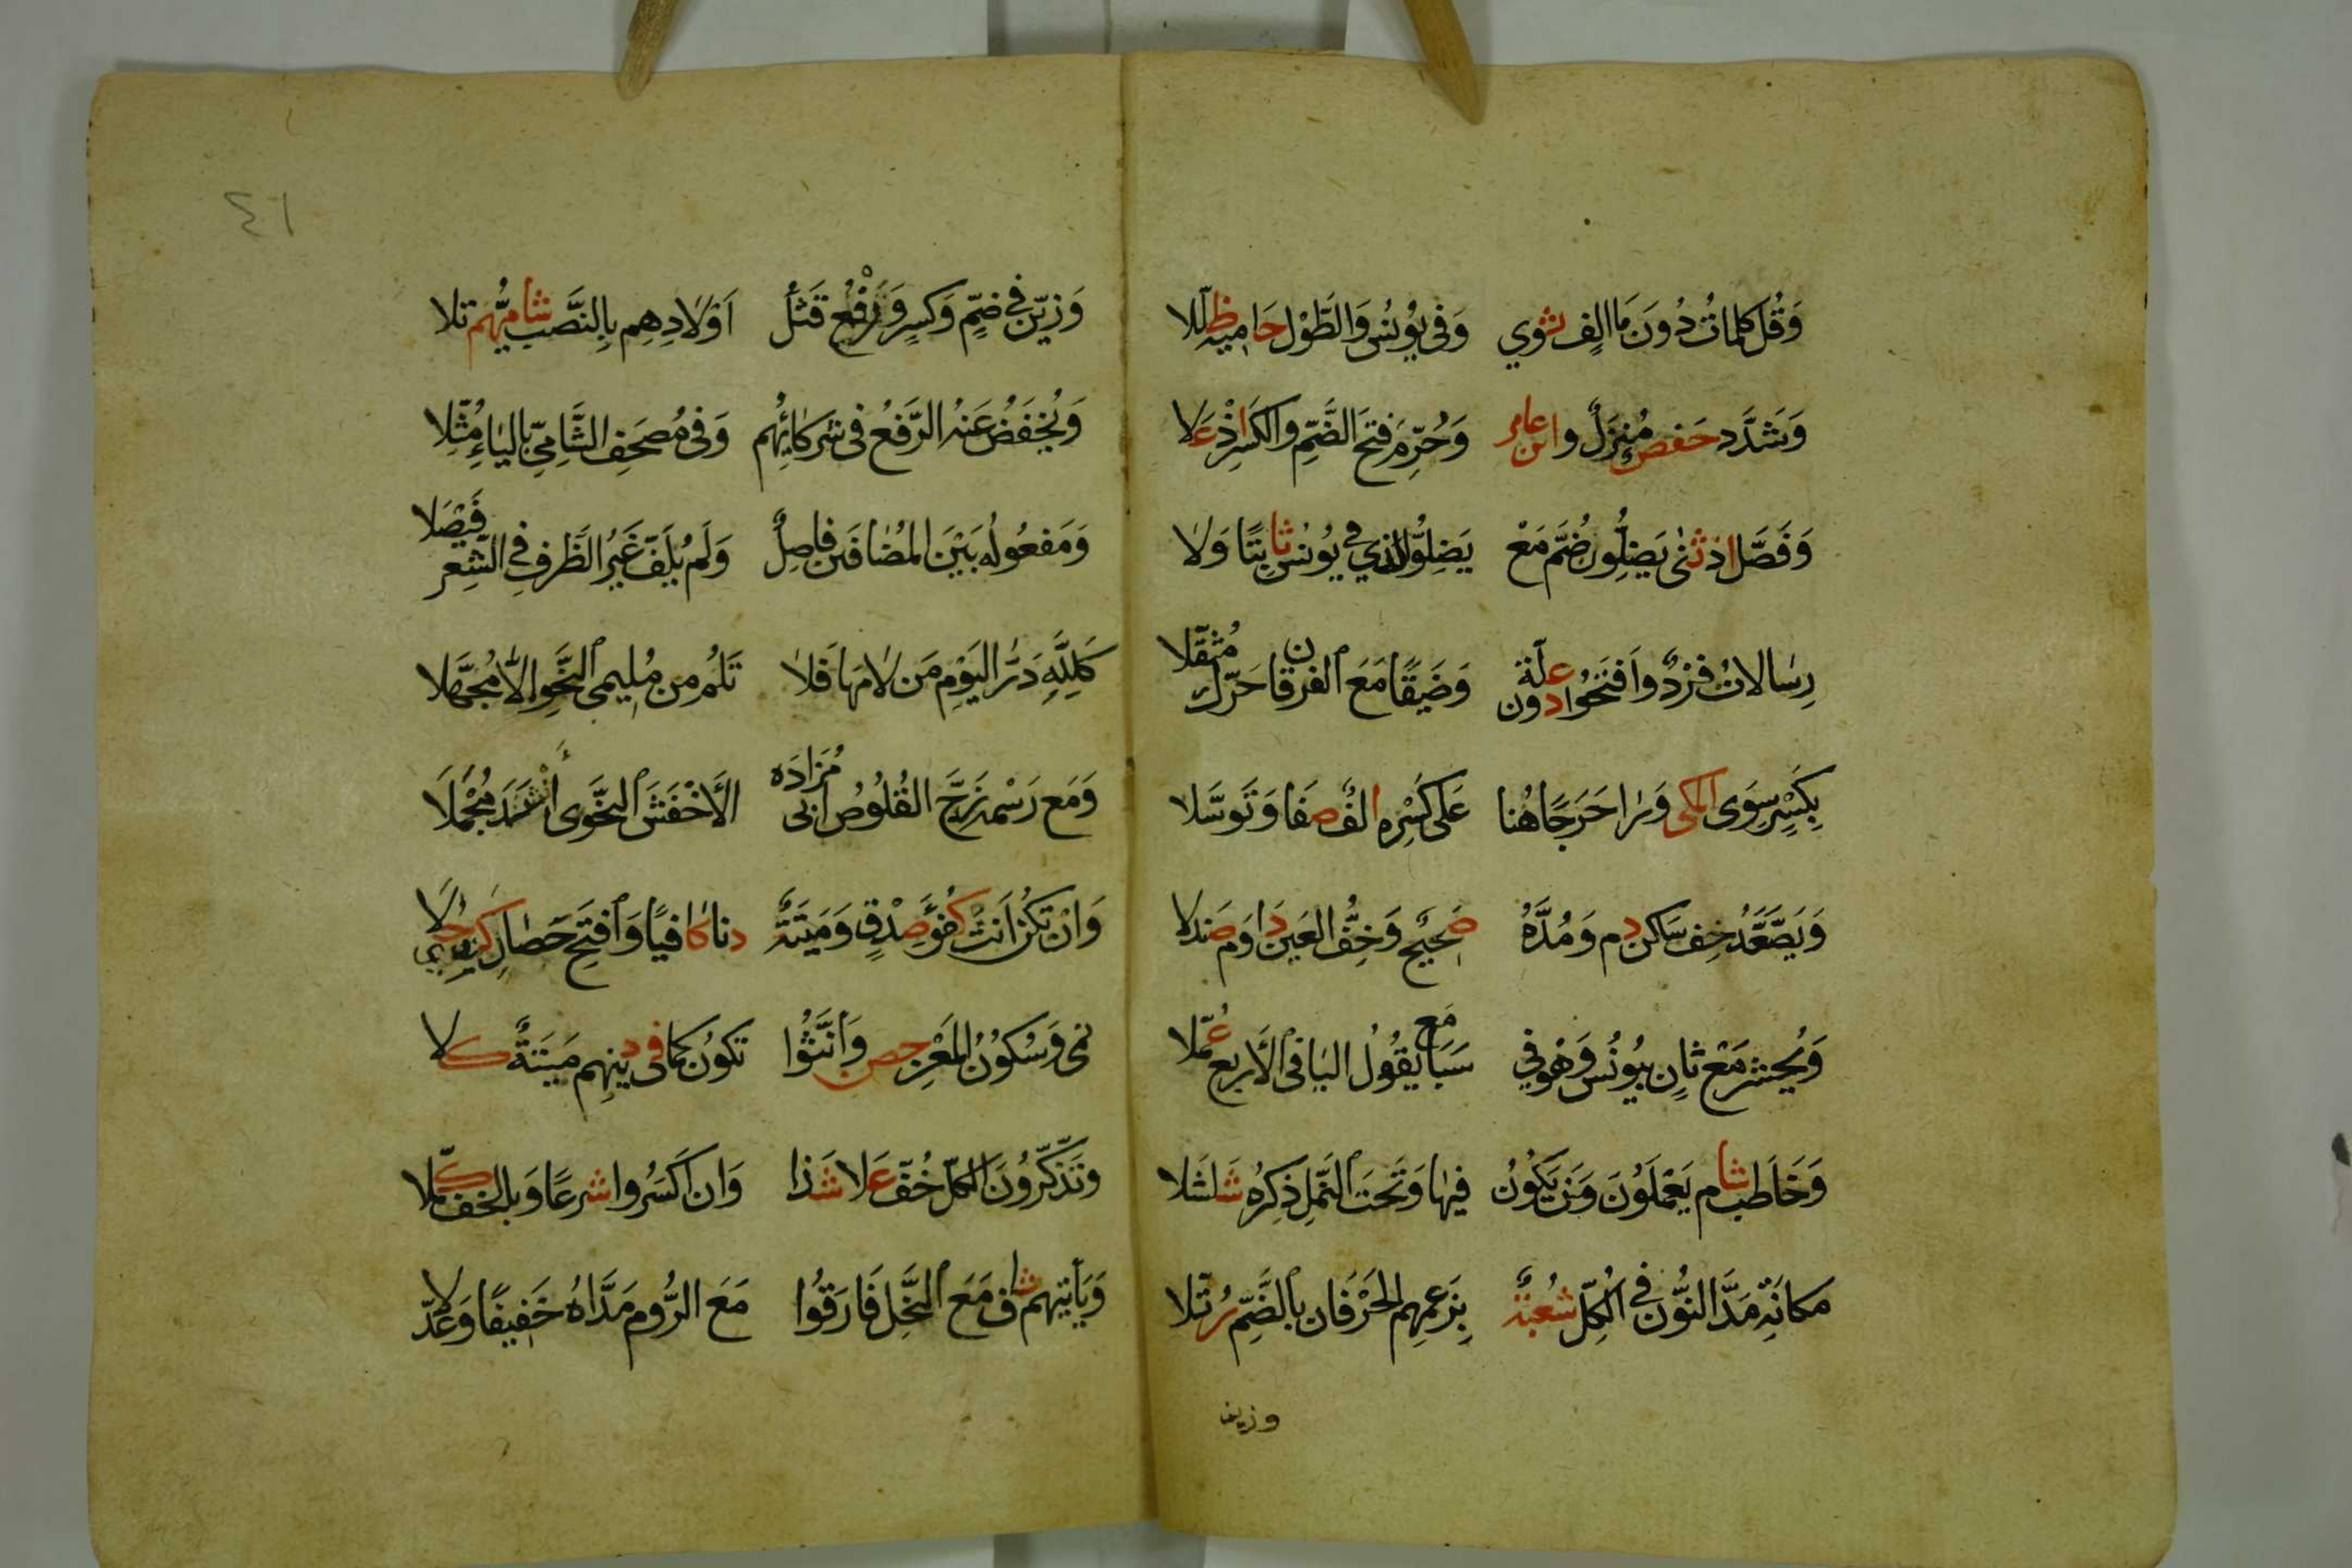 وَقُل كلماتٌ دُونَ مَا الِفٍ ثوي وَفي يُونُسٍ وَالطَّوْل حَامِيهِ ظلّلا
وَشَدَّد حَفص مُنزَلٌ وابن عامر وَحُرِّمَ فتحَ الضَّمِّ والكَسرِ اذْ عَلا
وَفَصَّل اذ ثنى يَضِلُّون ضُمَّ مَعْ يَضِلُّوا الذي في يُونُسٍ ثابِتًا وَلا
رِسالاتُ فَرْدٌ وافتَحُوا دون علّة وَضَيقًا مَعَ الفرقان حَرّك مُثقّلا
بِكَسرٍ سِوَى المكي وَرا حَرَجًا هُنا عَلى كَسْرِهِ الفٌ صفَا وَتَوسَّلا
وَيَصَّعَدُ خِف سَاكن دم وَمُدَّهُ صَحِيحٌ وَخِفُّ العَينِ دَاوَمَ صَندلا
وَيُحشر مَعْ ثانٍ بيُونُس وَهْو في سَبَا مَع يَقُولُ اليَا في الأَربع عُمّلا
وَخَاطَب شام يَعْمَلُونَ وَمَن يَكُونُ فيهَا وَتَحتَ النَّملِ ذكِّرهُ شلشَلا
مكانَتِ مَدَّ النُّونَ في الكلّ شُعبَةٌ بِزَعمِهِم الحَرْفَان بالضَّمّ رُتّلا
وزين
٤٦
وَزيّن في ضَمٍّ وَكَسرٍ وَرَفْعِ قَتْلُ اَوْلادِهِم بِالنَّصبِ شامِيُّهم تلا
وَيُخفَضُ عَنهُ الرَّفعُ في شركائِهُم وَفي مُصحَفِ الشَّامِيّ بالياءِ مُثّلا
وَمَفعُولُه بَيْنَ المُضافَين فاصِلٌ وَلَم يُلفَ غَيرُ الظَّرفِ في الشِّعر فَيْصَلا
كَلِلَّهِ دَرُّ اليَوْمِ مَن لامَهَا فَلا تَلُم من مُلِيمي النَّحوِ الّا مُجَهَّلا
وَمَع رَسْمهِ زَجَّ القُلُوصَ ابى مُزادَه الأَخْفَشَ النَّحوى أنشَدَ مُجْمَلا
وَان تكُن اَنّث كُفؤَ صِدْقٍ وَمَيتَةٌ دنا كافيًا وَافتح حَصادِ كذي حُلا
نمى وَسُكونُ المَعْزِ حصن وَأَنّثُوا تكونُ كما في دينهِم مَيتَةٌ كلا
وتَذّكّرُونَ الكلّ خُفّ عَلا شَذا وَان اكسَرُوا شرعًا وَبالخفّ كمّلا
وَيَأتيهم شاف مَعَ النَّحل فَارَقُوا مَعَ الرُّوم مَدَّاهُ خَفيفًا وَعُدّلا